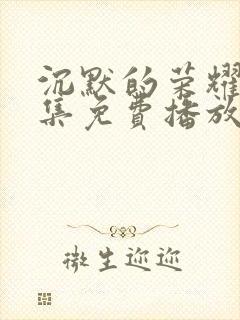 沉默的荣耀
集免费播放
微生迩迩